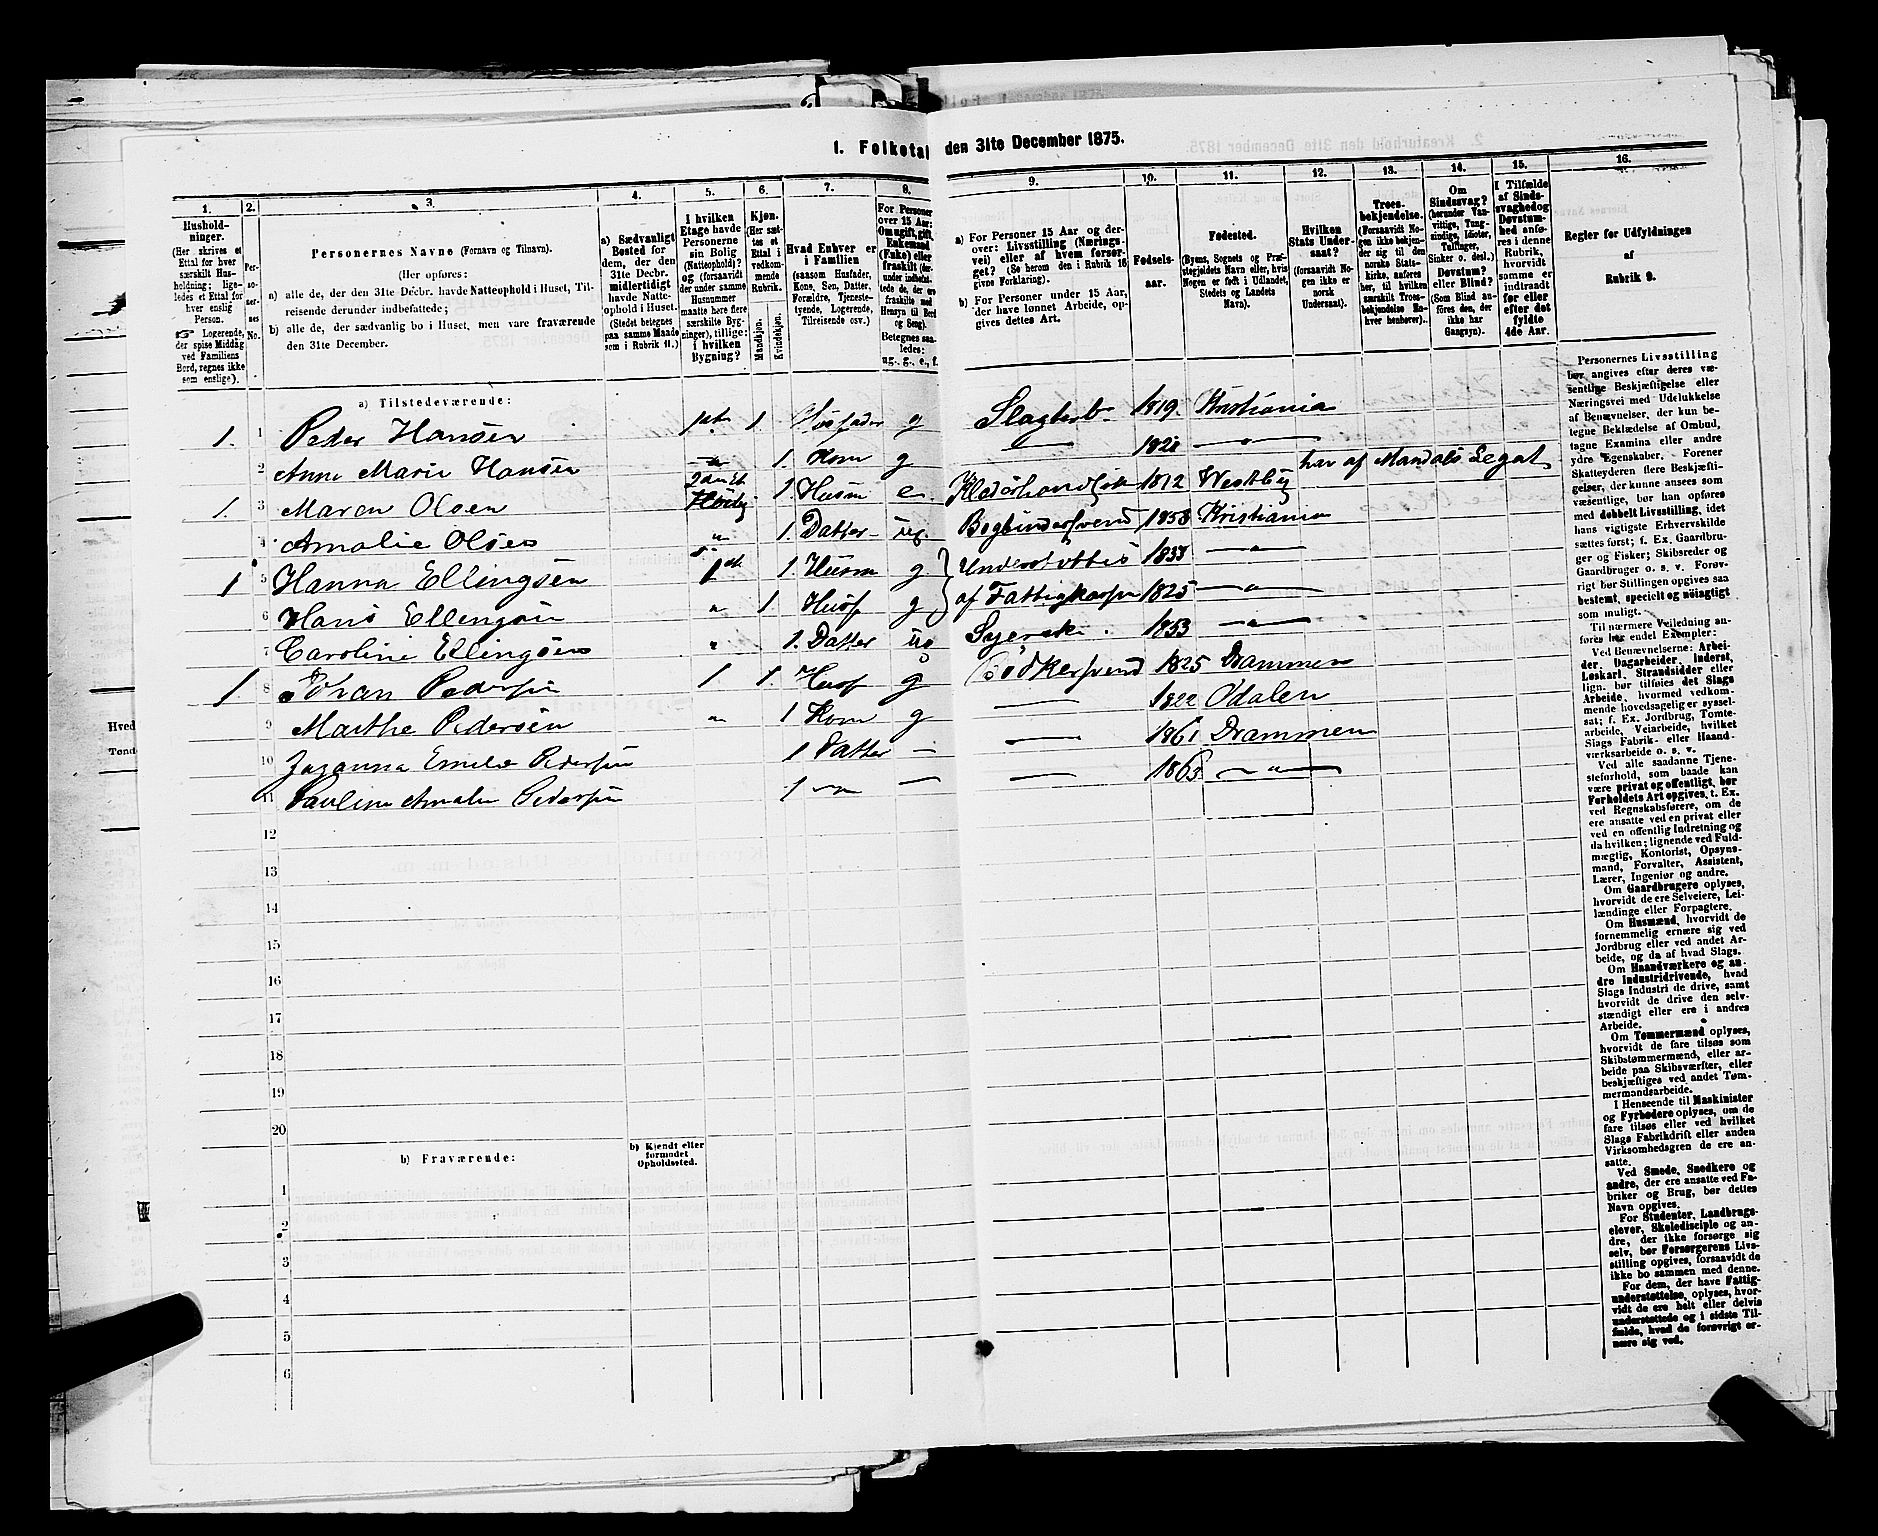 1. Folketal den 31te December 1875.
1. 2. 3. 4. 5. 6. 7. 8. 9. 10. 11. 12. 13. 14. 15. 16.
Hushold-
ninger.
(Her skrives et
Ettal for hver
særskilt Hus-
holdning; lige-
ledes et Ettal for
hver enslig
Person.
☞ Logerende,
der spise Middag
ved Familiens
Bord, regnes ikke
som enslige).
Per-
so-
ner-
nes
No.
Personernes Navne (Fornavn og Tilnavn).
(Her opføres:
a) alle de, der den 31te Decbr. havde Natteophold i Huset, Til-
reisende derunder indbefattede;
b) alle de, der sædvanlig bo i Huset, men vare fraværende
den 31te December.
a) Sædvanligt
Bosted for
dem, der den
31te Decbr.
midlertidigt
havde Natte-
ophold i Huset.
(Stedet betegnes
paa samme Maade
som i Rubrik 11.)
I hvilken
Etage havde
Personerne
sin Bolig
(Natteophold)?
og (forsaavidt
der under samme
Husnummer
maatte høre flere
særskilte Byg-
ninger), tillige:
i hvilken
Bygning?
Kjøn.
(Her sæt-
tes et
Ettal i
vedkom-
mende
Rubrik.
Mandkjøn.
Kvindekjøn.
Hvad Enhver er
i Familien
(saasom Husfader,
Kone, Søn, Datter,
Forældre, Tjeneste-
tyende, Logerende,
Tilreisende osv.)
For Personer
over 15 Aar:
Om ugift, gift,
Enkemand
(Enke) eller
fraskilt
Betegnes saa-
ledes:
ug., g., e., f.
a) For Personer 15 Aar og der-
over: Livsstilling (Nærings-
vei) eller af hvem forsør-
get? (Se herom den i Rubrik 16
givne Forklaring).
b) For Personer under 15 Aar,
der have lønnet Arbeide, op-
gives dettes Art.
Fødsels-
aar.
Fødested.
(Byens, Sognets og Præ-
stegjeldets Navn eller, hvis
Nogen er født i Udlandet,
Stedets og Landets
Navn).
I hvilken
Stats Under-
saat?
(forsaavidt No-
gen ikke er
norsk
Undersaat).
Troes-
bekjendelse.
(Forsaavidt No-
gen ikke bekjen-
der sig til den
norske Stats-
kirke, anføres
her, til hvilken
særskilt Troes-
bekjendelse En-
hver henhører).
Om
Sindssvag?
(herunder Van-
vittige, Tung-
sindige, Idioter,
Tullinger,
Sinker o. desl.)
Døvstum?
eller Blind?
(Som Blind an-
føres den, der
ikke har
Gangsyn).
I Tilfælde
af Sinds-
svaghed og
Døvstum-
hed anfø-
res i denne
Rubrik,
hvorvidt
samme er
indtraadt
før eller
efter det
fyldte
4de Aar.
Regler for Udfyldningen
af
Rubrik 9.
a) Tilstedeværende:
1. 1 Peder Hansen 1ste 1 Husfader g Slagterb. 1819. Kristiania
2 Anne Marie Hansen " 1. Kone g — 182 — " —
1. 3 Maren Olsen 1. Husm e. 1812 Westby har af Mandals Legat
4 Amalie Olsen " 1. Datter ug. Bogbindersvend 1858 Kristiania
1 5 Hanna Ellingsen 1 1. Husm g Understøttes 183 — " —
6 Hans Ellingsen " 1 Husf g af Fattigkassen 1825 — " —
7 Caroline Ellingsen " 1. Datter ug Syerske. 1853 — " —
1 8 Johan Pedersen 1 1. Husf g Bødkersvend 1825 Drammen
9 Marthe Pedersen " 1 Kone g — 1822 Odalen
10 Jozanna Emelie Pedersen 1 Datter — — 1861 Drammen
11 Pauline Amalie Pedersen 1 — " — — — 1865 — " —
12
13
14
15
16
17
18
19
20
b) Fraværende:
b) Kjendt eller
formodet
Opholdssted.
1
2
3
4
5
6
Personernes Livsstilling
bør angives efter deres væ-
sentlige Beskjæftigelse eller
Næringsvei med Udelukkelse
af Benævnelser, der kun be-
tegne Beklædelse af Ombud,
tagne Examina eller andre
ydre Egenskaber. Forener
Skatteyderen flere Beskjæfti-
gelser, der kunne ansees som
væsentlige, bør han opføres
med dobbelt Livsstilling, idet
hans vigtigste Erhvervskilde
sættes først; f. Ex. Gaardbru-
ger og Fisker; Skibsreder og
Gaardbruger o. s. v. Forøv-
rigt bør Stillingen opgives saa
bestemt, specielt og nøiagtigt
som muligt.
Til nærmere Veiledning an-
føres her endel Exempler:
Ved Benævnelserne: Arbei-
der, Dagarbeider, Inderst,
Løskarl, Strandsidder eller
lign. bør tilføies det Slags
Arbeide, hvormed vedkom-
mende hovedsagelig er syssel-
sat; f. Ex. Jordbrug, Tomte-
arbeide, Veiarbeide, hvilket
Slags Fabrik- eller Haand-
værksarbeide o. s. v.
Ved alle saadanne Tjene-
steforhold, som baade kan
være privat og offentligt, bør
Forholdets Art opgives, t. Ex.
ved Regnskabsførere, om de
ere ansatte ved en privat eller
ved en offentlig Indretning og
da hvilken; lignende ved Fuld-
mægtig, Kontorist, Opsyns-
mand, Forvalter, Assistent,
Lærer, Ingeniør og andre.
Om Gaardbrugere oplyses,
hvorvidt de ere Selveiere, Lei-
lændinge eller Forpagtere.
Om Husmænd, hvorvidt de
fornemmelig ernære sig ved
Jordbrug eller ved andet Ar-
beide, og da af hvad Slags.
Om Haandværkere og an-
dre Industridrivende, hvad
Slags Industri de drive, samt
hvorvidt de drive den selv-
stændigt eller ere i andres
Arbeide.
Om Tømmermænd oplyses,
hvorvidt de fare tilsøs som
Skibstømmermænd, eller ar-
beide paa Skibsværfter, eller
beskjæftiges ved andet Tøm-
mermandsarbeide.
I Henseende til Maskinister
og Fyrbødere oplyses, om de
fare tilsøs eller ved hvilket
Slags Fabrikdrift eller anden
Virksomhedsgren de ere an-
satte.
Ved Smede, Snedkere og
andre, der ere ansatte ved Fa-
briker og Brug, bør dettes
Navn opgives.
For Studenter, Landbrugs-
elever, Skoledisciple og an-
dre, der ikke forsørge sig
selv, bør Forsørgerens Livs-
stilling opgives, forsaavidt de
ikke bo sammen med denne.
For dem, der have Fattig-
understøttelse, oplyses, hvor-
vidt de ere helt eller delvis
understøttede og i sidste Til-
fælde, hvad de forøvrigt er-
nære sig ved.